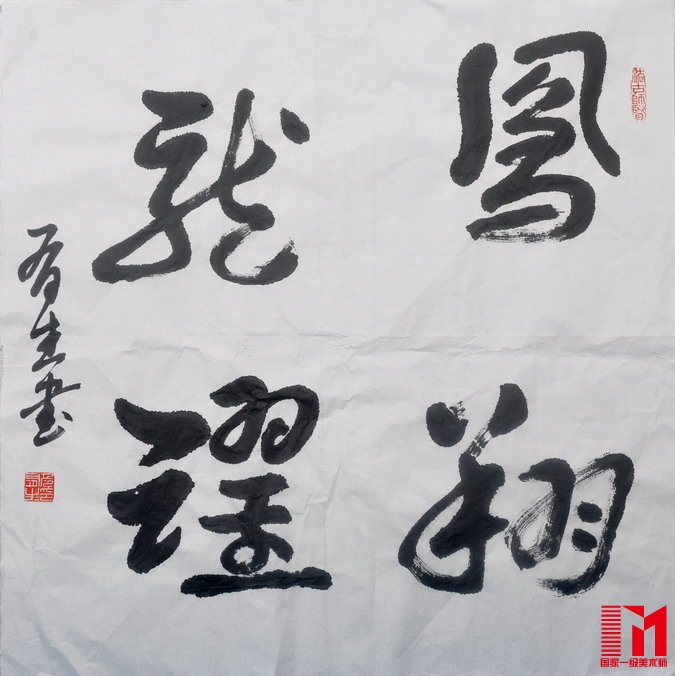 鳳翔
龍躍
有生書
国家一级美术师